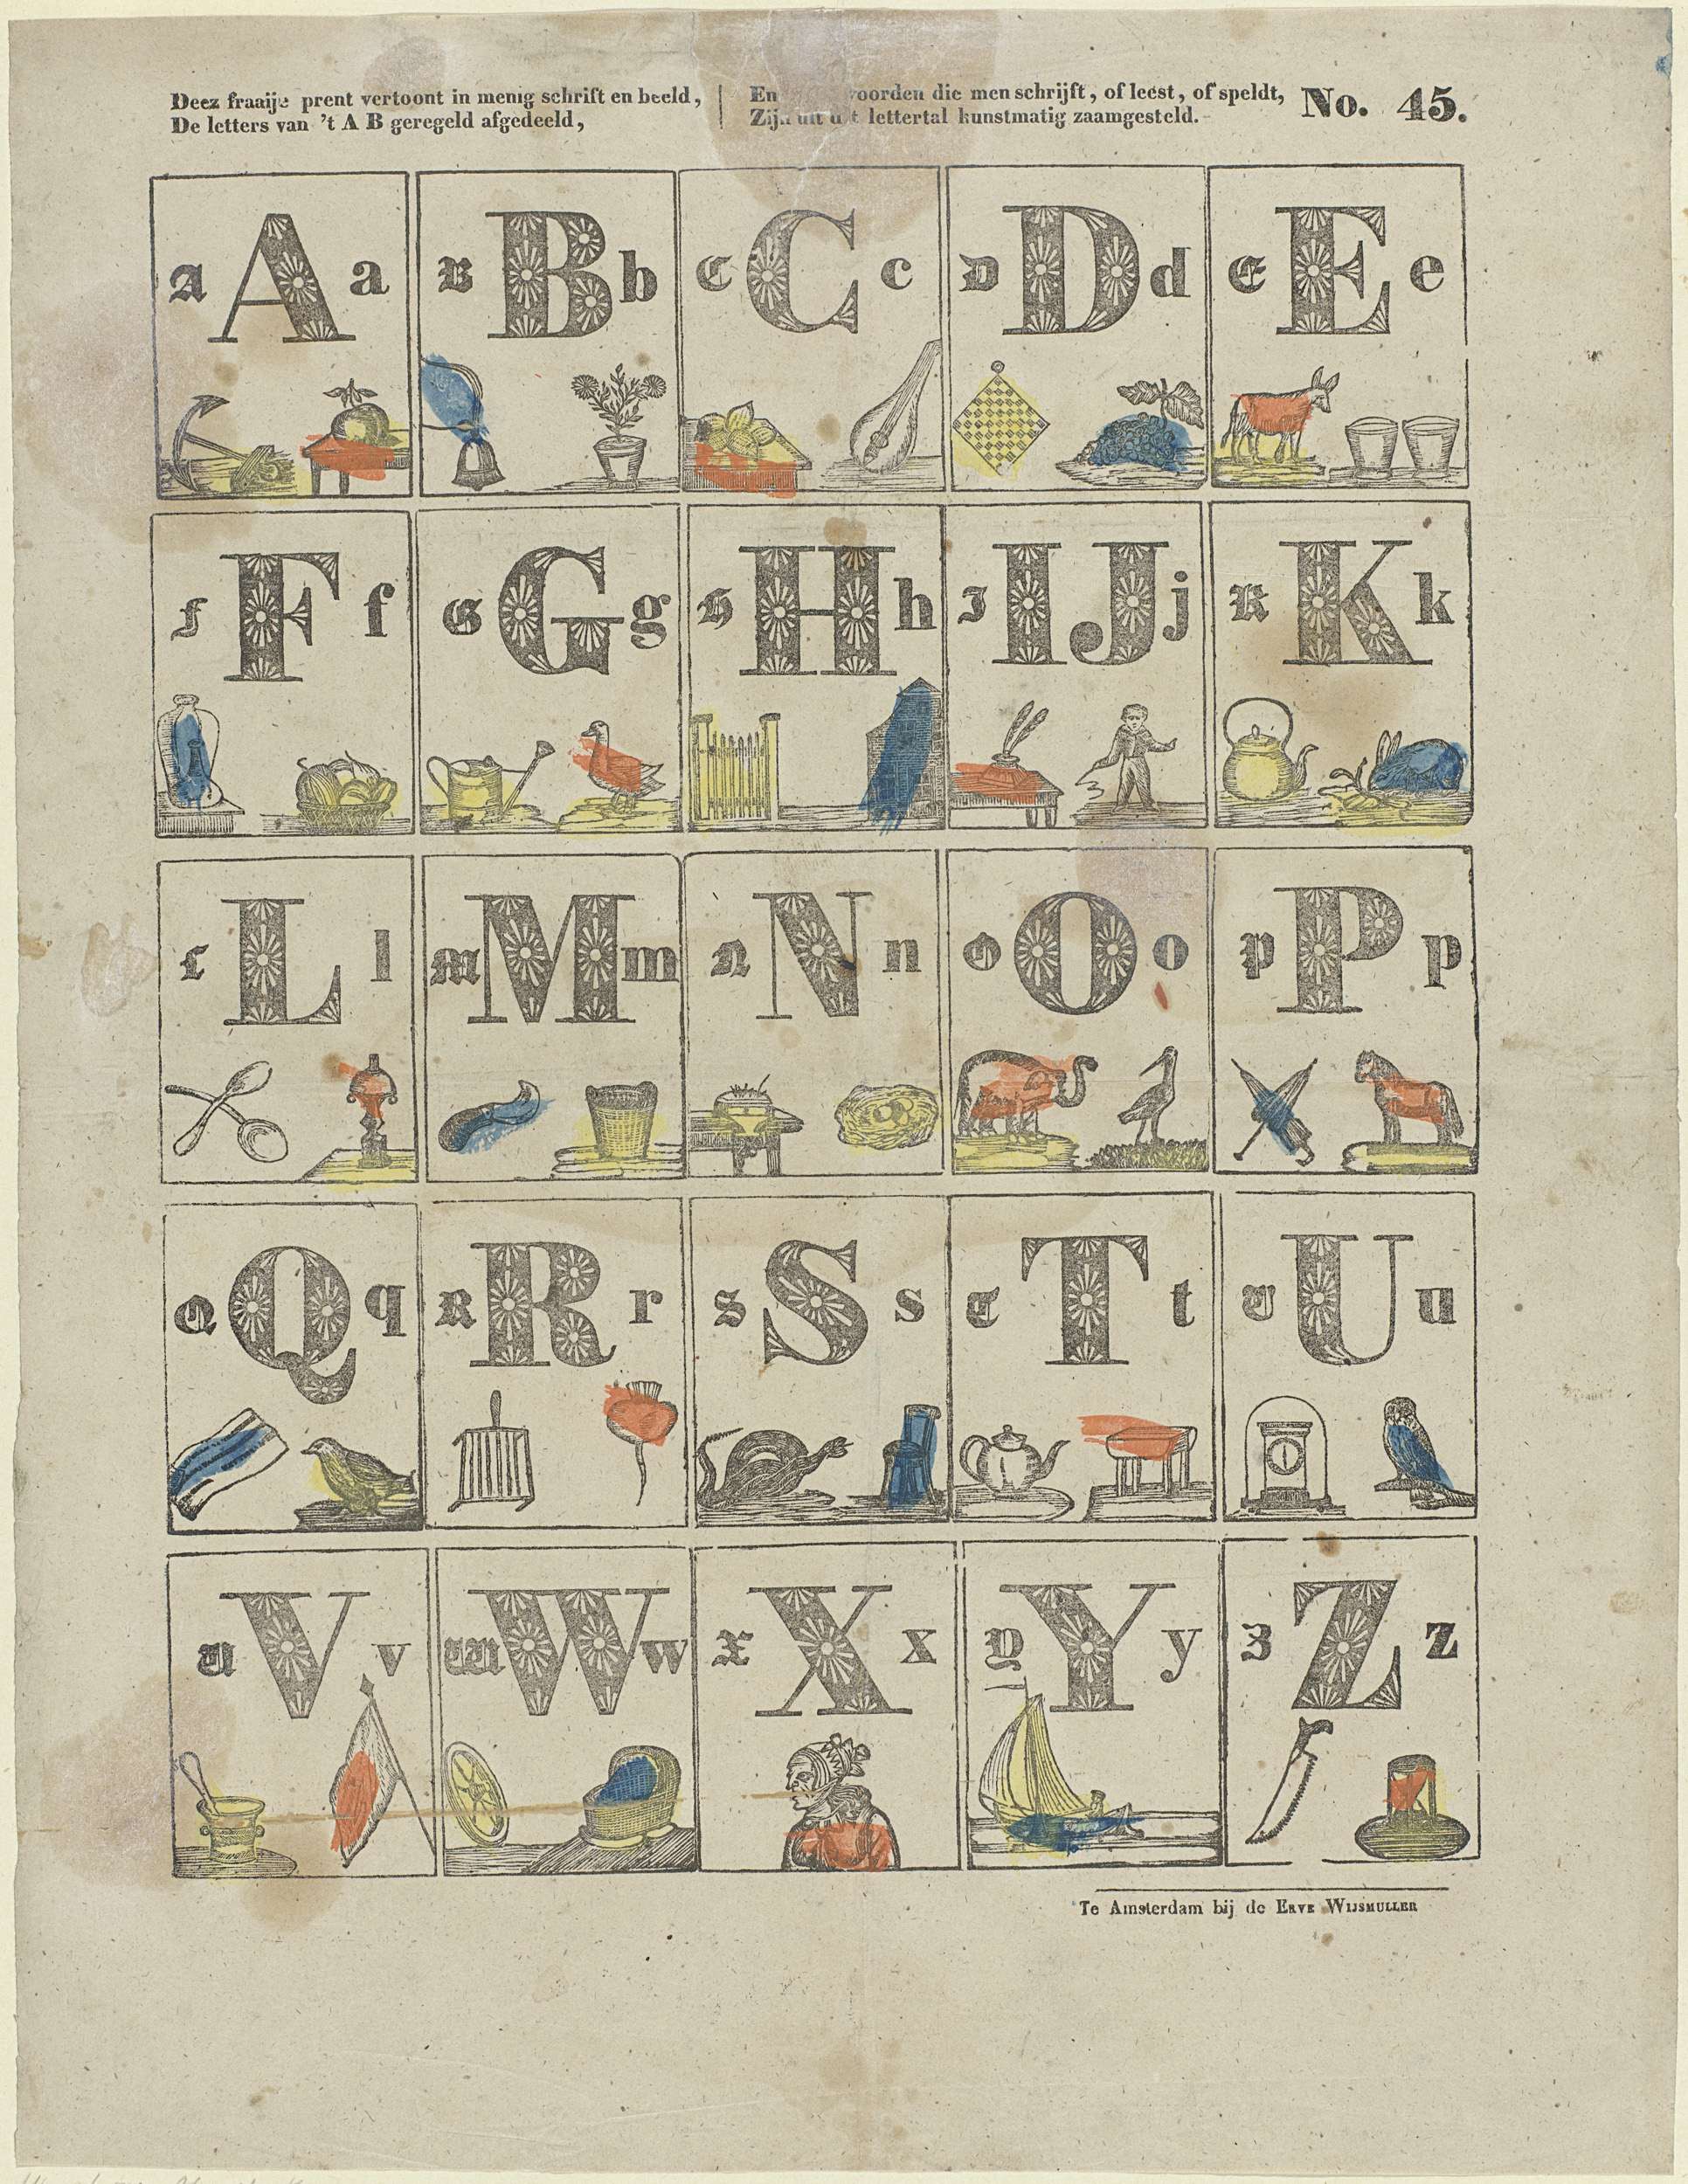 Deez fraaije prent vertoont in menig schrift en beeld,
De letters van 't A B geregeld afgedeeld,
En woorden die men schrijft, of leest, of speldt,
Zijn uit dit lettertal kunstmatig zaamgesteld.
No. 45.
A A a
B B b
C C c
D D d
E E e
F F f
G G g
H H h
I IJ j
K K k
L L l
M M m
N N n
O O o
P P p
Q Q q
R R r
S S s
T T t
U U u
V V v
W W w
X X x
Y Y y
Z Z z
Te Amsterdam bij de ERVE WIJSMULLER